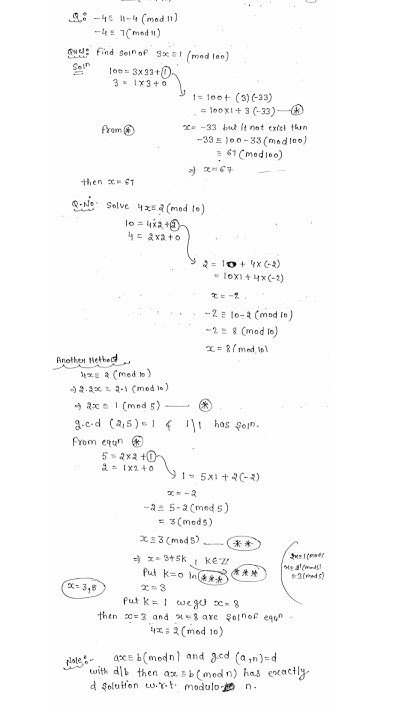 Q.: -4 ≡ 11-4 (mod 11)
-4 ≡ 7 (mod 11)
Q.No: Find soln of 3x ≡ 1 (mod 100)
Soln
100 = 3×33+1
3 = 1×3+0
1 = 100 + (3)(-33)
= 100×1 + 3(-33) — *
From * x = -33 but it not exist then
-33 ≡ 100-33 (mod 100)
≡ 67 (mod 100)
⇒ x = 67
then x = 67
Q.No. Solve 4x ≡ 2 (mod 10)
10 = 4×2+2
4 = 2×2+0
2 = 10 + 4×(-2)
= 10×1 + 4×(-2)
x = -2
-2 ≡ 10-2 (mod 10)
-2 ≡ 8 (mod 10)
x = 8 (mod 10)
Another Method
4x ≡ 2 (mod 10)
⇒ 2·2x ≡ 2·1 (mod 10)
⇒ 2x ≡ 1 (mod 5) — *
g.c.d (2,5) = 1 & 1|1 has soln.
From eqn *
5 = 2×2+1
2 = 1×2+0
1 = 5×1 + 2(-2)
x = -2
-2 ≡ 5-2 (mod 5)
= 3 (mod 5)
x ≡ 3 (mod 5) — **
⇒ x = 3+5k, k∈Z — ***
2x ≡ 1 (mod 5
≡ 3 (mod 5)
Put k=0 in ***
x = 3
x = 3,8
Put k = 1 we get x = 8
then x=3 and x=8 are soln of eqn.
4x ≡ 2 (mod 10)
Note:- ax ≡ b (mod n) and g.c.d (a,n) = d
with d|b then ax ≡ b (mod n) has exactly
d solution w.r.t. modulo n.